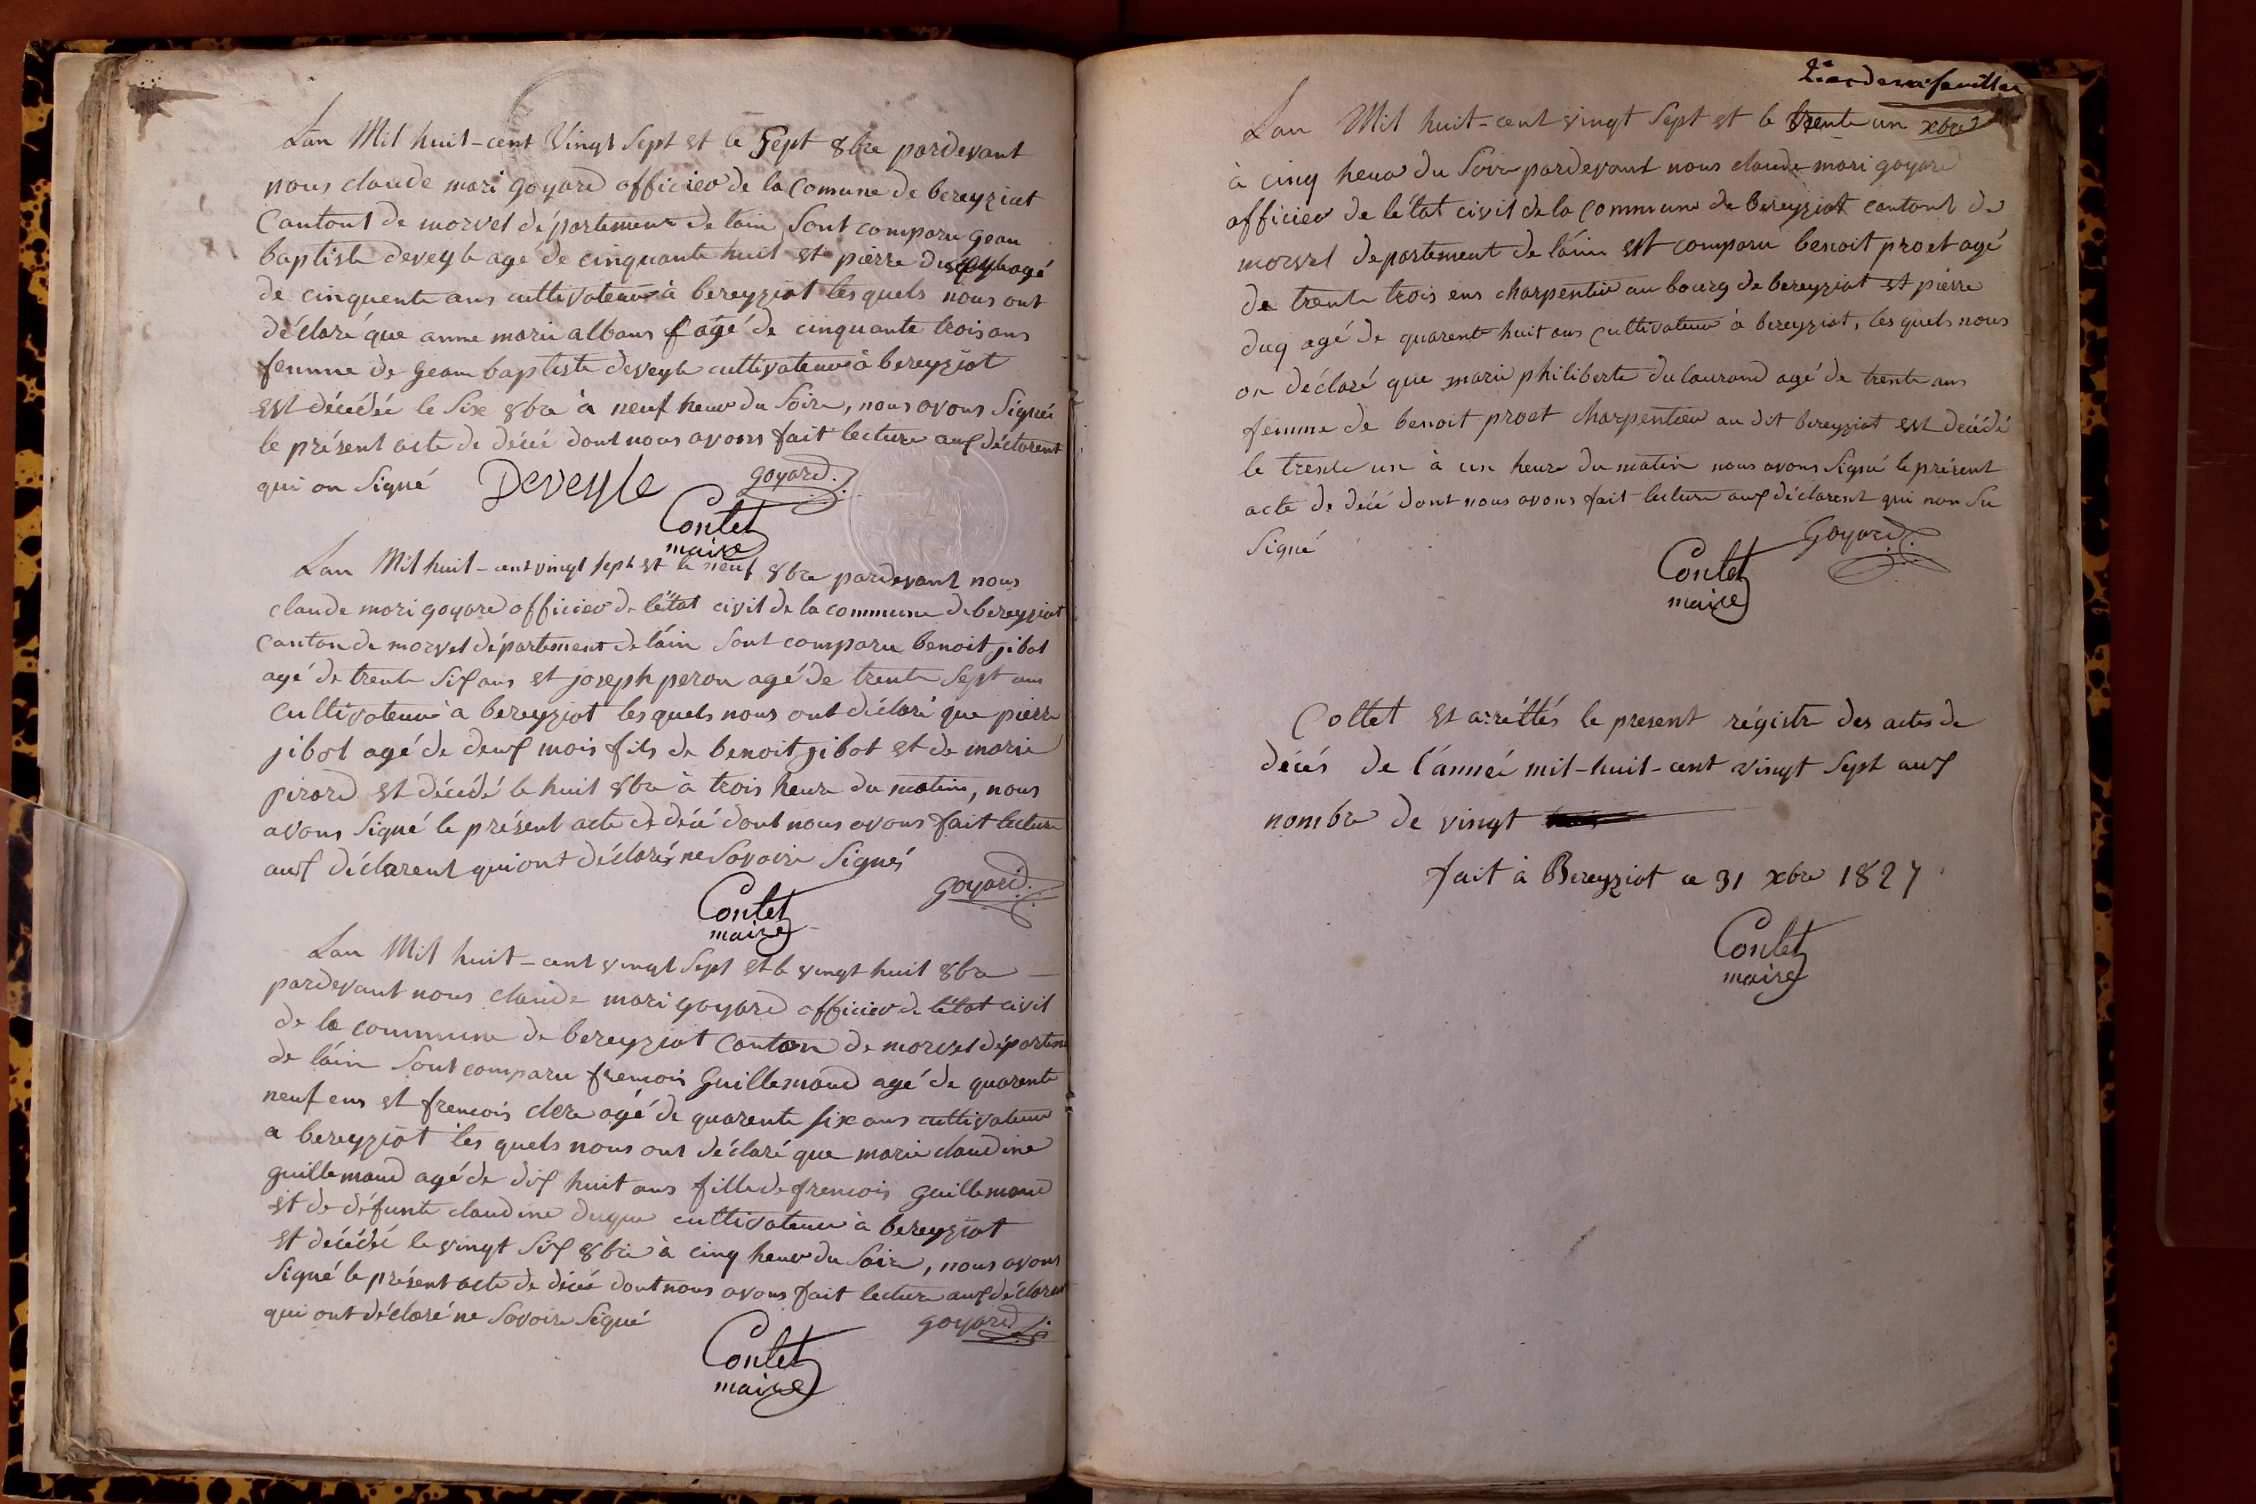 Lan Mil huit-cent Vingt Sept et le Sept 8bre pardevant
nous claude mari goyard officier de la comune de bereyziat
Cantont de morvel département de lain Sont comparu gean
baptiste deveyle agé de cinquante huit et pierre agé
de cinquente ans cultivateur à bereyziat les quels nous ont
déclaré que anne marie albans f agé de cinquante trois ans
femme de gean baptiste deveyle cultivateur à bereyziat
est décédée le Six 8bre à neuf heur du Soire, nous avons Signé
le présent acte de décé dont nous avons fait lecture aux déclarent
qui on Signé Deveyle goyard
Contet
maire
Lan Mil huit-cent vingt sept et le neuf 8bre pardevant nous
claude mari goyard officier de létat civil de la commune de bereyziat
canton de morvel département de láin Sont comparu benoit jibot
agé de trente Six ans et joseph peron agé de trente Sept ans
cultivateur à bereyziat les quels nous ont déclaré que pierre
jibot agé de deux mois fils de benoit jibot et de marie
pirard est décédé le huit 8bre à trois heure du matin, nous
avons Signé le présent acte de décé dont nous avons fait lecture
aux déclarent qui ont déclarés ne Savoire Signés
goyard
Contet
maire
Lan Mil huit-cent vingt Sept et le vingt huit 8bre
pardevant nous claude mari goyard officier de létat civil
de la commune de bereyziat Canton de morvel départem
de láin Sont comparu frencois Guillemaud agé de quarente
neuf ens et frencois clere agé de quarente six ans cultivateur
a bereyziat les quels nous ont déclaré que marie claudine
guillemaud agé de dix huit ans fille de frencois guillemaud
et de défunte claudine duque cultivateur à bereyziat
et décédé le vingt Six 8bre à cinq heur du Soire, nous avons
Signé le présent acte de décé dont nous avons fait lecture aux déclarent
qui ont déclaré ne Savoire Signé goyard
Contet
maire
feuillet
Lan Mil huit-cent vingt Sept et le trente un xbre
à cinq heur du Soire pardevant nous claude mari goyard
officier de létat civil de la commune de bereyziat cantont de
morvel departement de láin est comparu benoit proet agé
de trente trois ens charpentier au bourg de bereyziat et pierre
duq agé de quarente huit ans cultivateur à bereyziat, les quels nous
on déclaré que marie philiberte dulaurand agé de trente ans
femme de benoit proet charpentier au dit bereyziat est décédé
le trente un à un heure du matin nous avons Signé le présent
acte de décé dont nous avons fait lecture aux déclarent qui non Su
Signé
goyard
Contet
maire
Coltet et arréttés le present régistre des actes de
décés de l'anneé mil-huit-cent vingt Sept aux
nombre de vingt
fait à Bereyziat ce 31 xbre 1827
Contet
maire